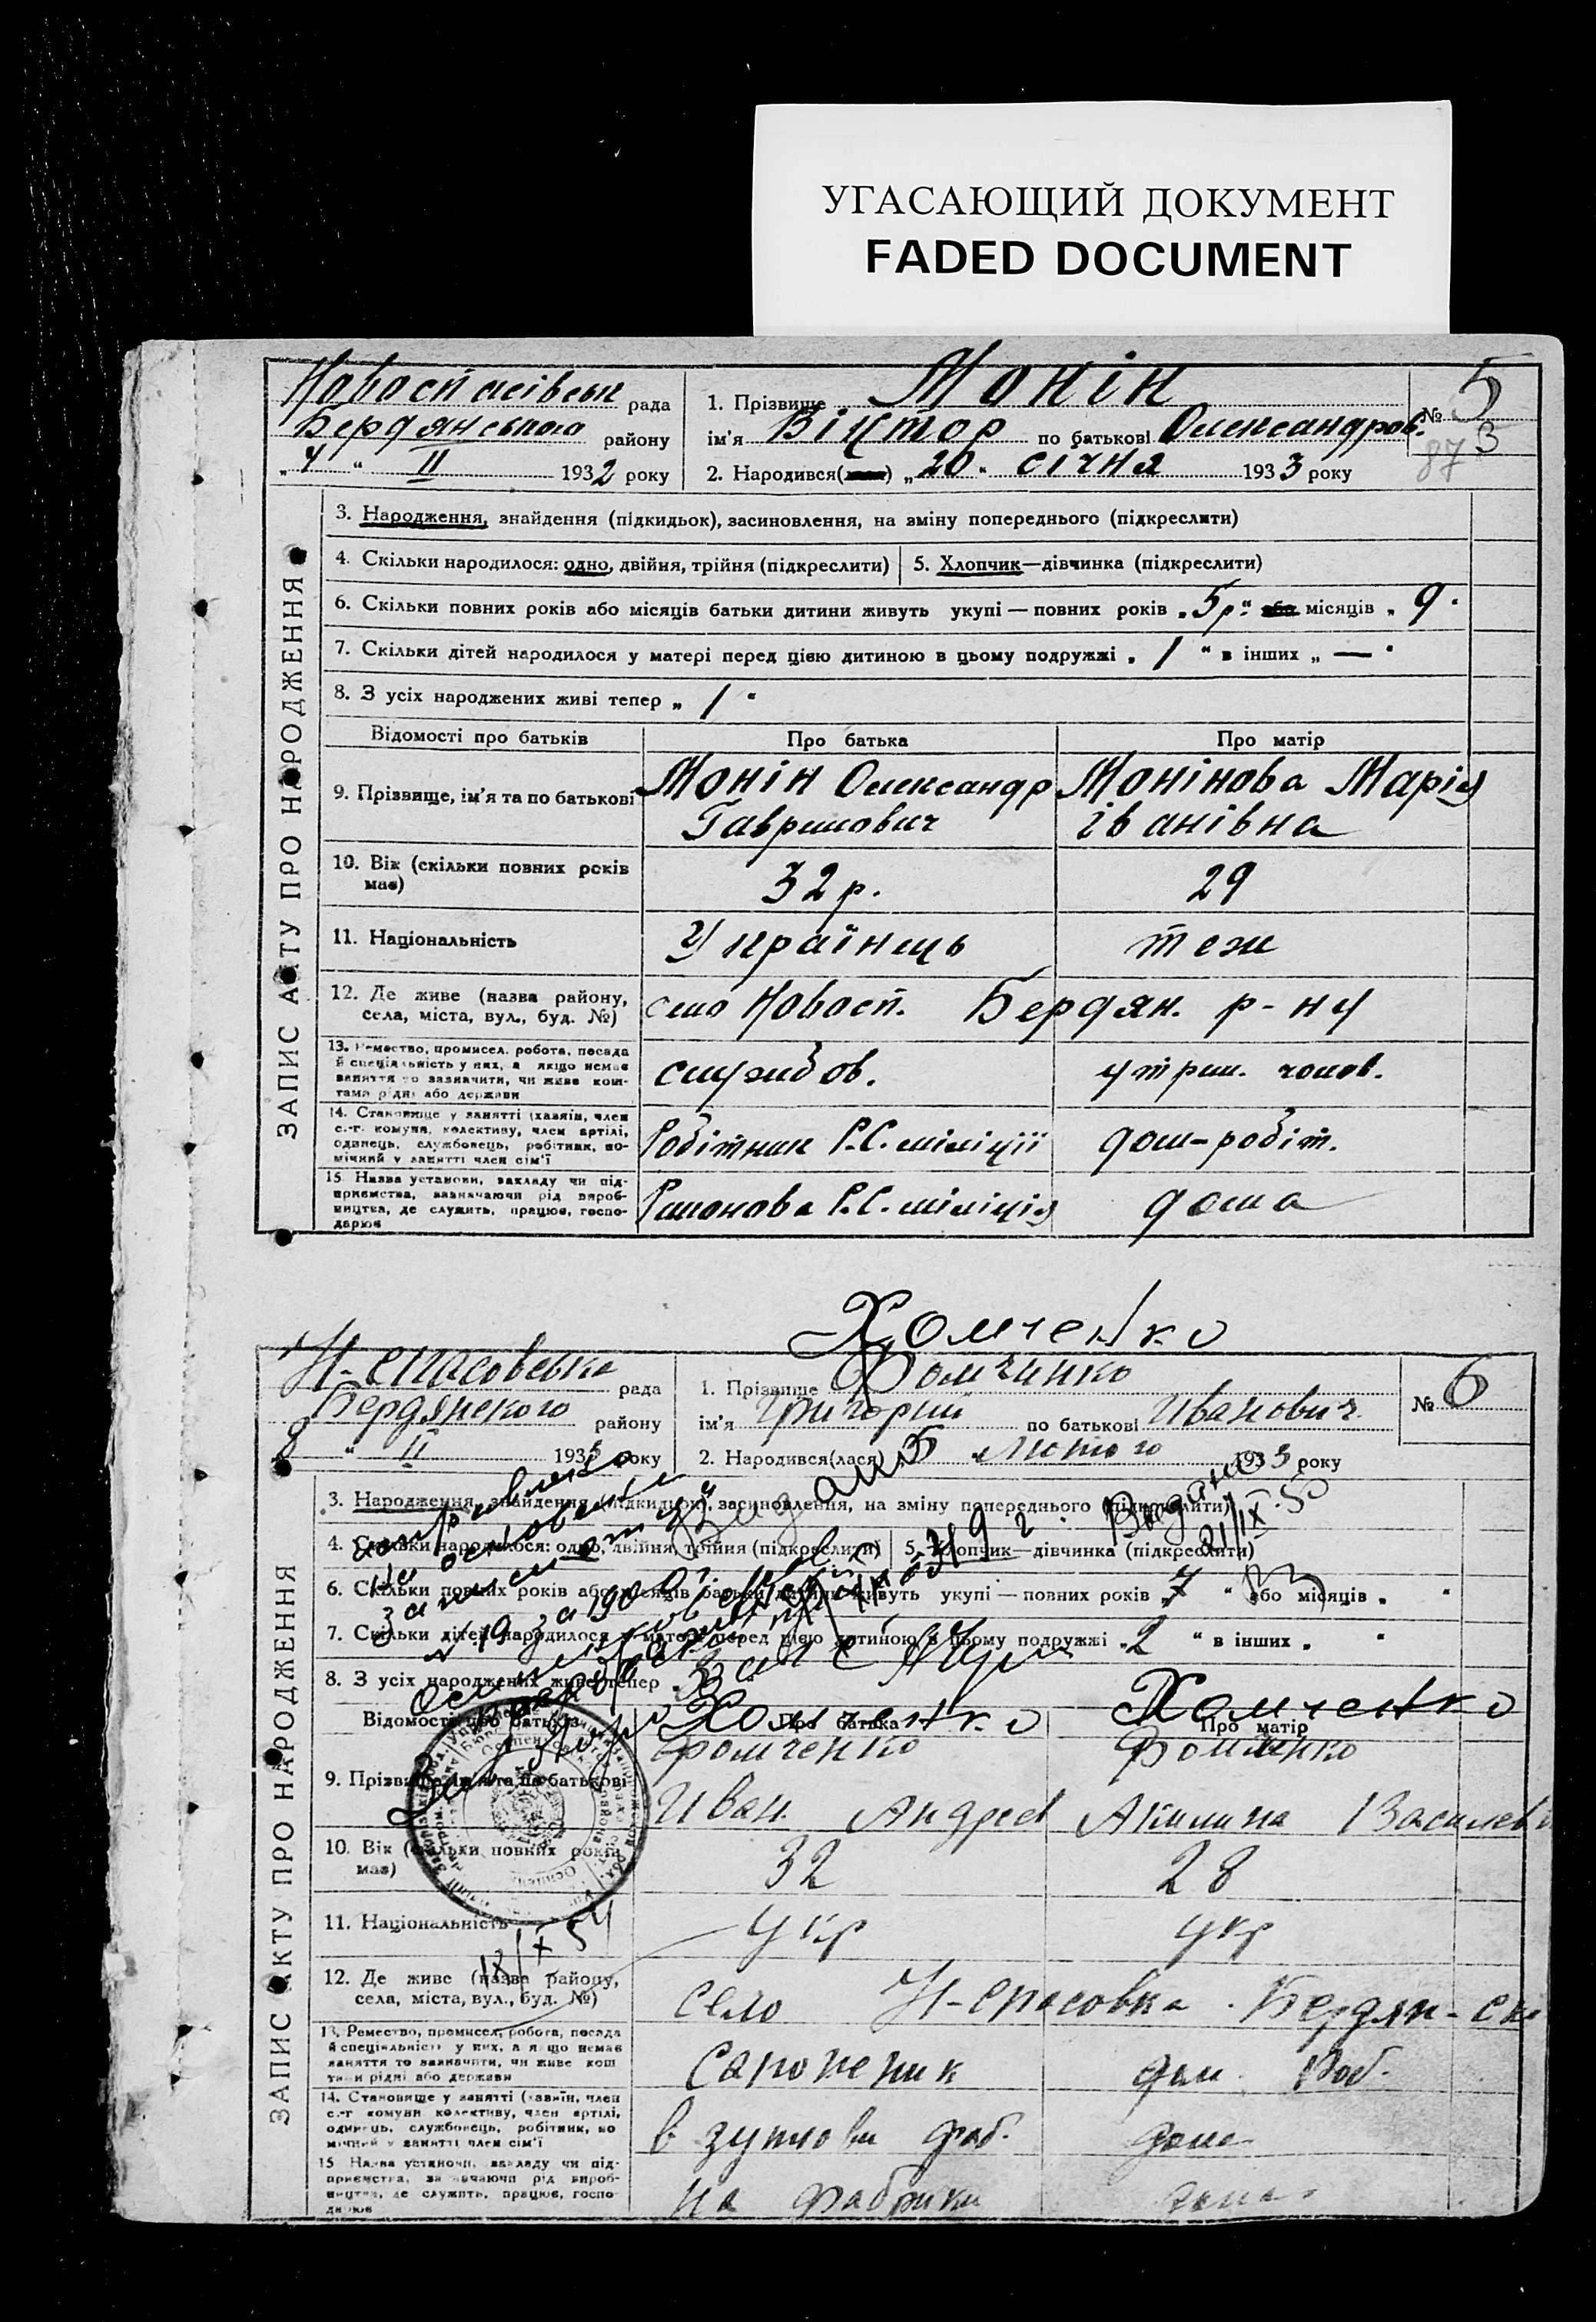 УГАСАЮЩИЙ ДОКУМЕНТ
FADED DOCUMENT
рада
Бердянського району
„4“ II 1932 року
1. Прізвище Монін
ім'я Віктор по батькові Олександров.
2. Народився „20“ січня 1933 року
№ 5
87 3
ЗАПИС АКТУ ПРО НАРОДЖЕННЯ
3. Народження, знайдення (підкидьок), засиновлення, на зміну попереднього (підкреслити)
4. Скільки народилося: одно, двійня, трійня (підкреслити)
5. Хлопчик—дівчинка (підкреслити)
6. Скільки повних років або місяців батьки дитини живуть укупі — повних років „5р“ або місяців „ 9 "
7. Скільки дітей народилося у матері перед цією дитиною в цьому подружжі „ 1 “ в інших „ — "
8. З усіх народжених живі тепер „ 1 "
Відомості про батьків Про батька Про матір
9. Прізвище, ім'я та по батькові
Монін Олександр
Гаврилович
Монінова Марія
Іванівна
10. Вік (скільки повних років має)
32 р. 29
11. Національність Українець теж
12. Де живе (назва району,
села, міста, вул., буд. №)
село Новосп. Бердян. р-ну
13. Ремество, промисел, робота, посада
й спеціяльність у них, а якщо немає
заняття то зазначити, чи живе кош-
тами рідні або держави
службов. утрим. чолов.
14. Становище у занятті (хазяїн, член
с.-г. комуни, колективу, член артілі,
одинець, службовець, робітник, по-
мічний у занятті член сім'ї
Робітник Р.С. міліції дом-робіт.
15 Назва установи, закладу чи під-
приємства, зазначаючи рід вироб-
ництва, де служить, працює, госпо-
дарює
Р.С. міліція дома
Хомченко
Н-Спасовська рада
Бердянского району
8 “ II 1933 року
1. Прізвище Фомчинко
ім'я Григорий по батькові Иванович
2. Народився(лася) 5 Лютого 1933 року
№ 6
ЗАПИС АКТУ ПРО НАРОДЖЕННЯ
3. Народження, знайдення (підкидьок), засиновлення, на зміну попереднього (підкреслити)
4. Скільки народилося: одно, двійня, трійня (підкреслити)
5. Хлопчик—дівчинка (підкреслити)
Видано
21/IX-50
6. Скільки повних років або місяців батьки дитини живуть укупі — повних років „7 “ або місяців „ "
7. Скільки дітей народилося у матері перед цією дитиною в цьому подружжі „2 “ в інших „ "
8. З усіх народжених живі тепер „3
исправлено
на основании
Відомості про батьків Про батька Про матір
Хомченко Хомченко
9. Прізвище, ім'я та по батькові
Фомченко
Иван Андреев
Фомченко
Акилина Василев
10. Вік (скільки повних років має)
32 28
11. Національність укр укр
18/X 54
12. Де живе (назва району,
села, міста, вул., буд. №)
село Н-Спасовка Бердян-ск
13. Ремество, промисел, робота, посада
й спеціяльність у них, а якщо немає
заняття то зазначити, чи живе кош
тами рідні або держави
Сапожник дом. Роб.
14. Становище у занятті (хазяїн, член
с.-г комуни колективу, член артілі,
одинець, службовець, робітник, по
мічний у занятті член сім'ї
в фаб. дома
15 Назва установи, закладу чи під-
приємства, зазначаючи рід вироб-
ництва, де служить, працює, госпо-
дарює
на фабрики дома